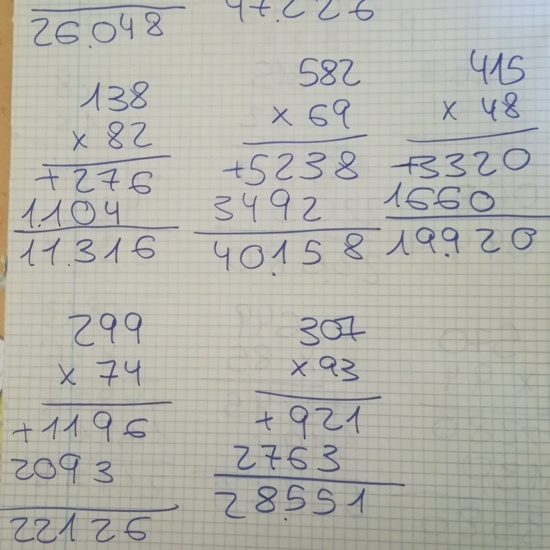 26.048
47.226
138
x 82
+276
1.104
11.316
582
x 69
+5238
3492
40.158
415
x 48
+3320
1660
19.920
299
x 74
+1196
2093
22126
307
x 93
+921
2763
28.551